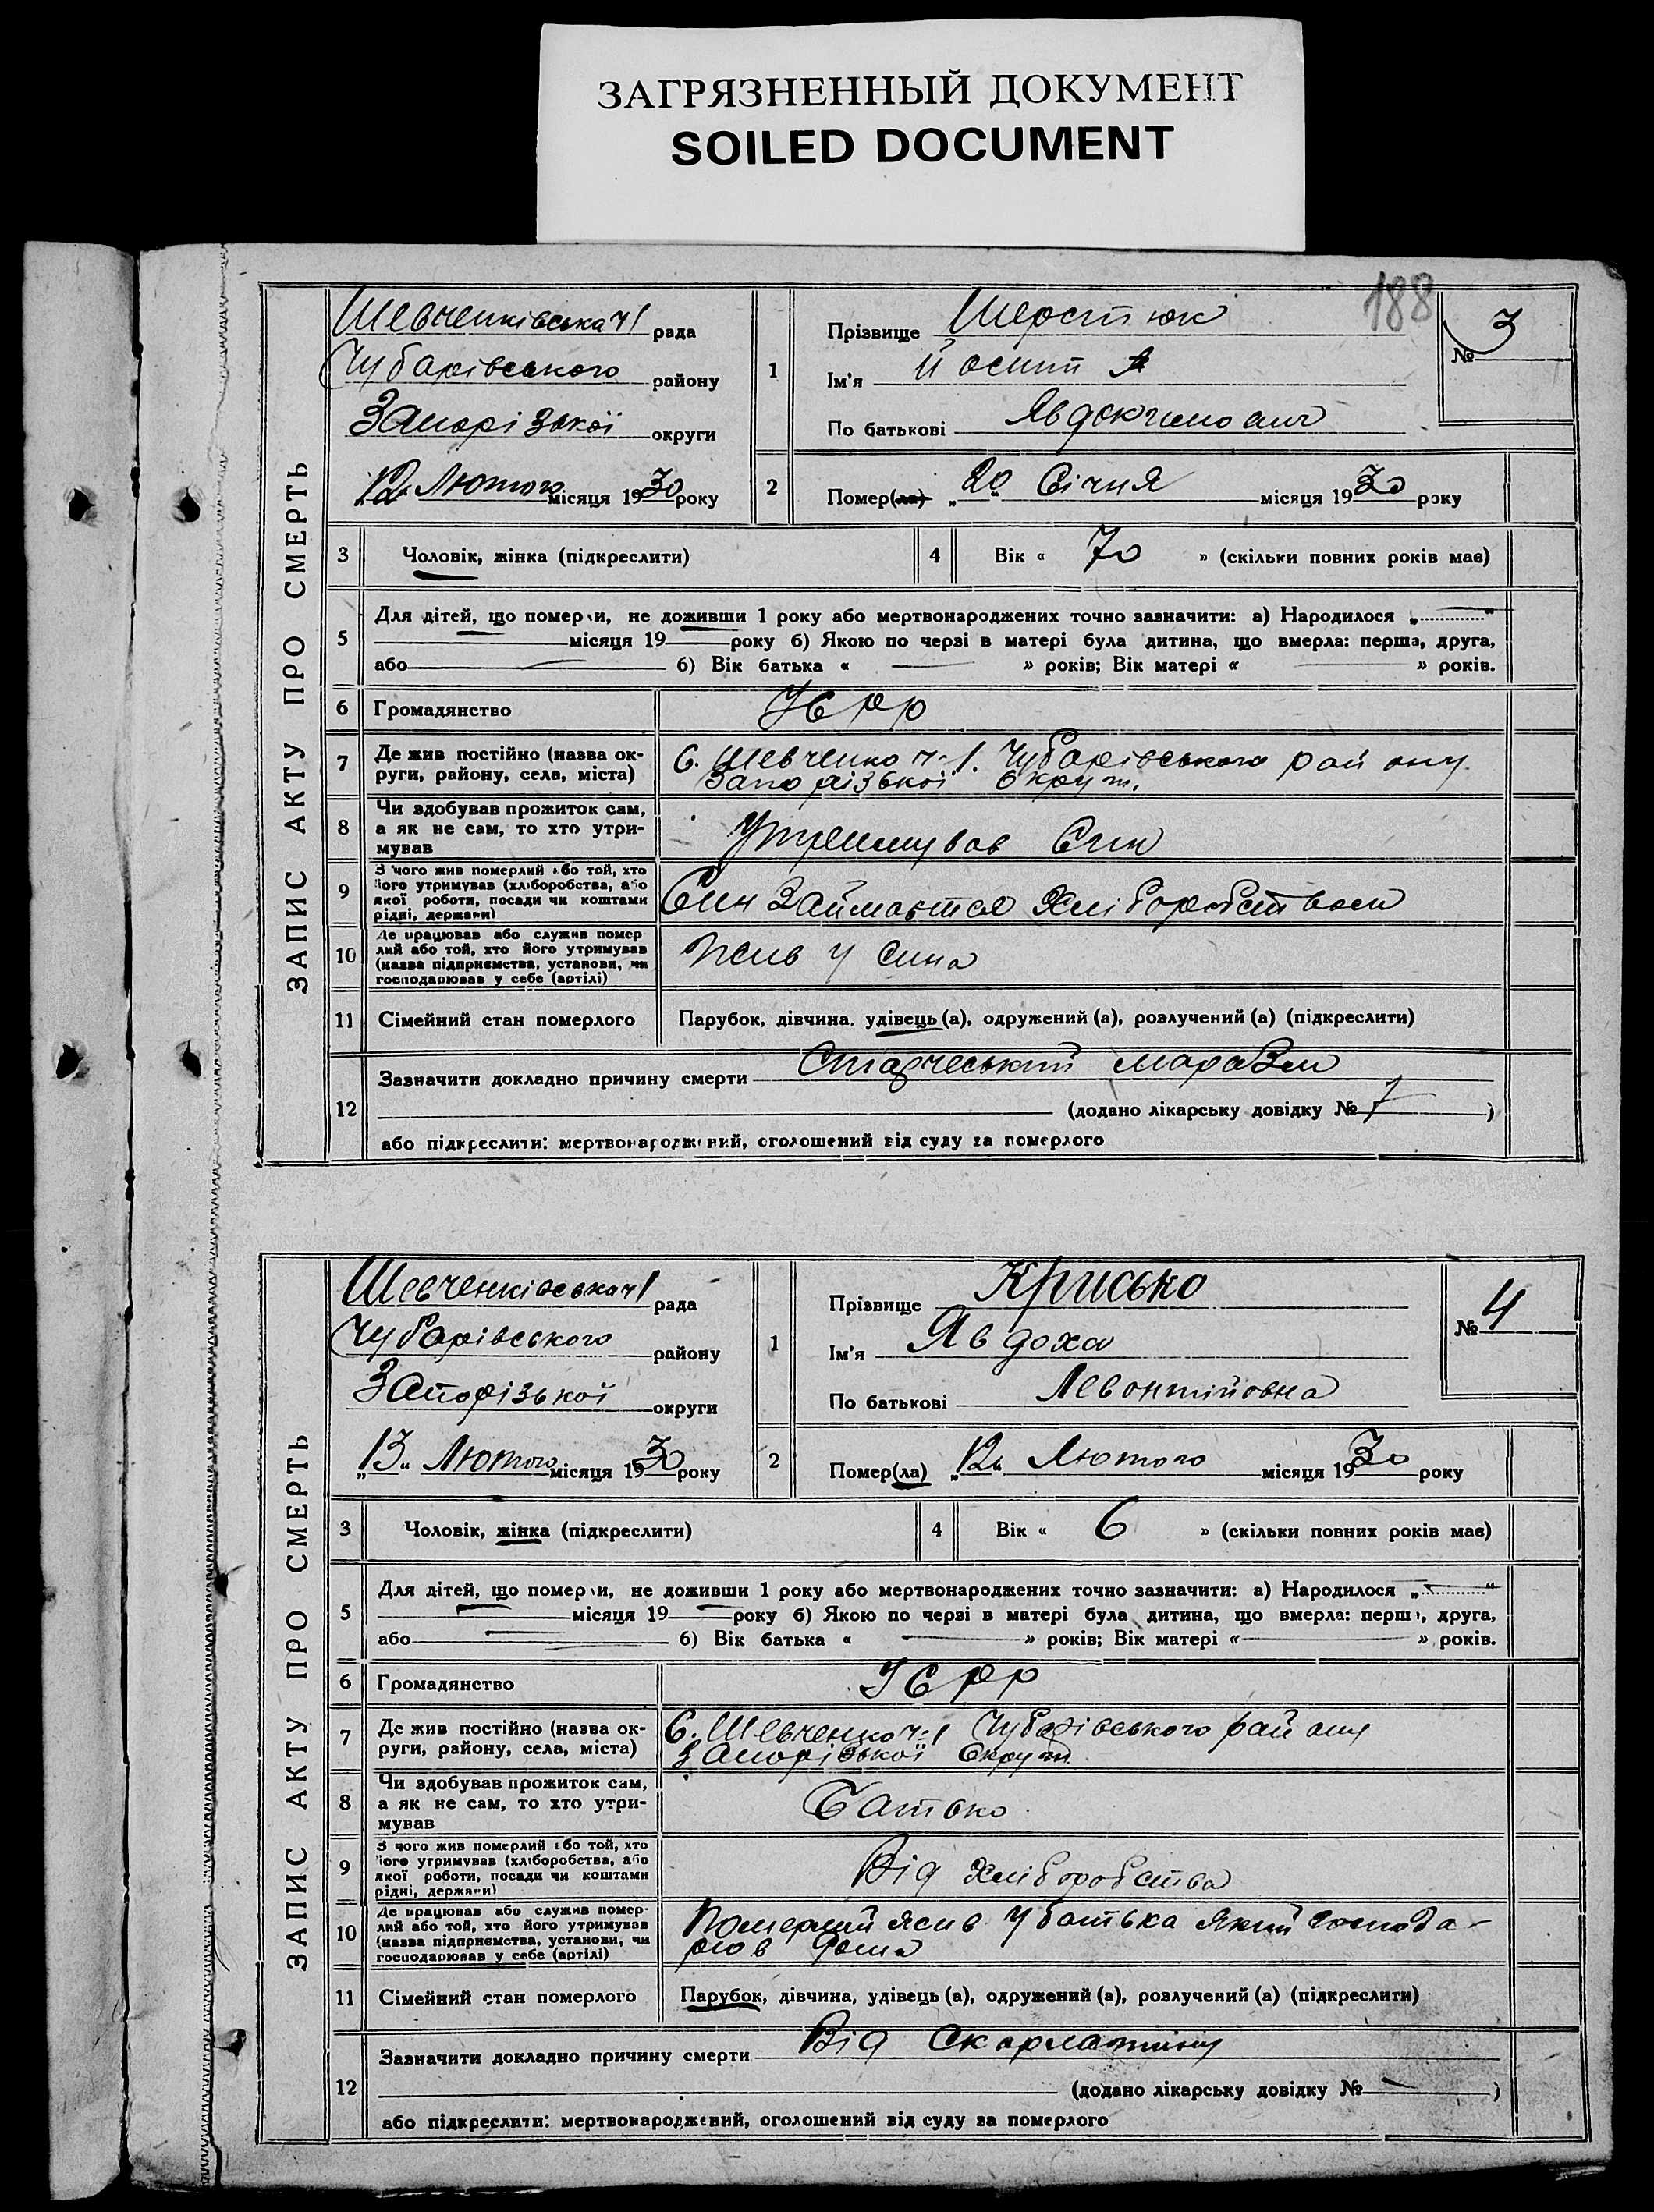 ЗАГРЯЗНЕННЫЙ ДОКУМЕНТ
SOILED DOCUMENT
188
ЗАПИС АКТУ ПРО СМЕРТЬ
Шевченківська ч1 рада
Чубарівського району
Запорізької округи
„12“ Лютого місяця 1930 року
1
Прізвище Шерстюк
Ім'я Йосип
По батькові Явдокимович
№ 3
2
Помер(ла) „20“ Січня місяця 1930 року
3 Чоловік, жінка (підкреслити)
4 Вік « 70 » (скільки повних років має)
5 Для дітей, що померли, не доживши 1 року або мертвонароджених точно зазначити: а) Народилося „ “
місяця 19 року б) Якою по черзі в матері була дитина, що вмерла: перша, друга,
або б) Вік батька « » років; Вік матері « » років.
6 Громадянство УСРР
7 Де жив постійно (назва ок-
руги, району, села, міста)
С. Шевченко ч-1. Чубарівського району
Запорізької Округи.
8 Чи здобував прожиток сам,
а як не сам, то хто утри-
мував
Утримував Син
9 З чого жив померлий або той, хто
його утримував (хліборобства, або
якої роботи, посади чи коштами
рідні, держави)
Син займається хліборобством
10 Де працював або служив помер
лий або той, хто його утримував
(назва підприємства, установи, чи
господарював у себе (артілі)
Жив у сина
11 Сімейний стан померлого Парубок, дівчина, удівець (а), одружений (а), розлучений (а) (підкреслити)
12 Зазначити докладно причину смерти Старческий маразм
(додано лікарську довідку № 7 )
або підкреслити: мертвонароджений, оголошений від суду за померлого
ЗАПИС АКТУ ПРО СМЕРТЬ
Шевченківська ч1 рада
Чубарівського району
Запорізької округи
„13“ Лютого місяця 1930 року
1
Прізвище Крисько
Ім'я Явдоха
По батькові Левонтійовна
№ 4
2
Помер(ла) „12“ Лютого місяця 1930 року
3 Чоловік, жінка (підкреслити)
4 Вік « 6 » (скільки повних років має)
5 Для дітей, що померли, не доживши 1 року або мертвонароджених точно зазначити: а) Народилося „ “
місяця 19 року б) Якою по черзі в матері була дитина, що вмерла: перша, друга,
або б) Вік батька « » років; Вік матері « » років.
6 Громадянство УСРР
7 Де жив постійно (назва ок-
руги, району, села, міста)
С. Шевченко ч-1 Чубарівського району
Запорізької Округи
8 Чи здобував прожиток сам,
а як не сам, то хто утри-
мував
Батько
9 З чого жив померлий або той, хто
його утримував (хліборобства, або
якої роботи, посади чи коштами
рідні, держави)
Від хліборобства
10 Де працював або служив помер-
лий або той, хто його утримував
(назва підприємства, установи, чи
господарював у себе (артілі)
Померлий жив у батька який господа-
рюв дома
11 Сімейний стан померлого Парубок, дівчина, удівець (а), одружений (а), розлучений (а) (підкреслити)
12 Зазначити докладно причину смерти Від скарлатини
(додано лікарську довідку № )
або підкреслити: мертвонароджений, оголошений від суду за померлого